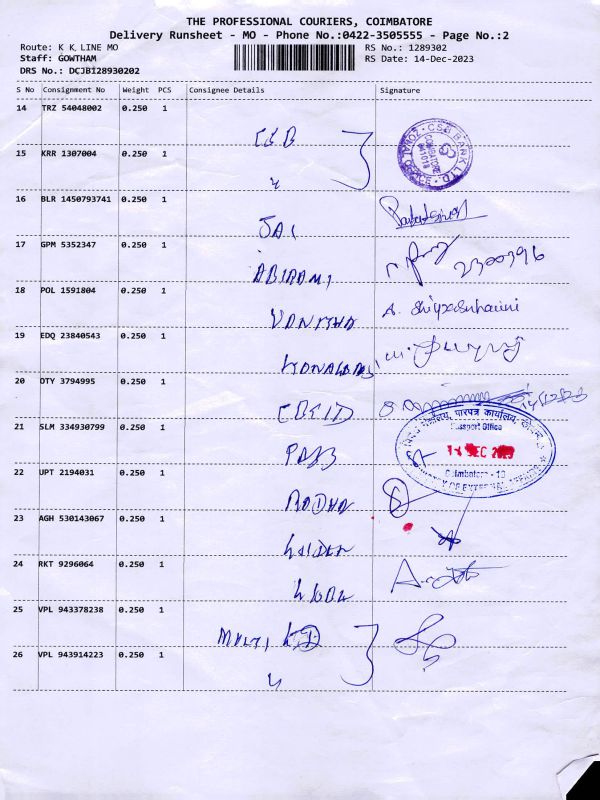 THE PROFESSIONAL COURIERS, COIMBATORE
Delivery Runsheet - MO - Phone No.:0422-3505555 - Page No.:2
Route: K K LINE MO RS No.: 1289302
Staff: GOWTHAM RS Date: 14-Dec-2023
DRS No.: DCJB128930202
S No Consignment No Weight PCS Consignee Details Signature
14 TRZ 54048002 0.250 1 CSB
CSB BANK LTD.
ZONAL OFFICE
COIMBATORE
641018
15 KRR 1307004 0.250 1 〃
16 BLR 1450793741 0.250 1 JAI
17 GPM 5352347 0.250 1 ABIRAMI
18 POL 1591804 0.250 1 VANITHA A. Shiyasuharini
19 EDQ 23840543 0.250 1
20 OTY 3794995 0.250 1 14/12/23
21 SLM 334930799 0.250 1 PASS
पारपत्र कार्यालय,
Passport Office
14 DEC 2023
Coimbatore - 18
MINISTRY OF EXTERNAL AFFAIRS
22 UPT 2194031 0.250 1 RADHA
23 AGH 530143067 0.250 1
24 RKT 9296064 0.250 1
25 VPL 943378238 0.250 1 MULTI
26 VPL 943914223 0.250 1 〃